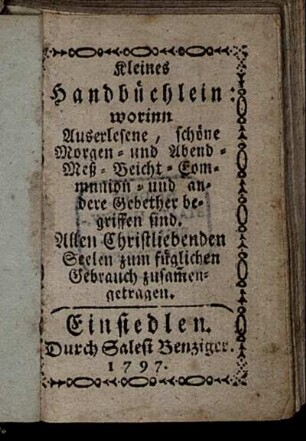 Kleines
Handbüchlein:
worinn
Auserlesene, schöne
Morgen- und Abend-
Meß- Beicht- Com-
munion- und an-
dere Gebether be-
griffen sind.
Allen Christliebenden
Seelen zum füglichen
Gebrauch zusam̄en-
getragen.
Einsiedlen.
Durch Salesi Benziger.
1797.